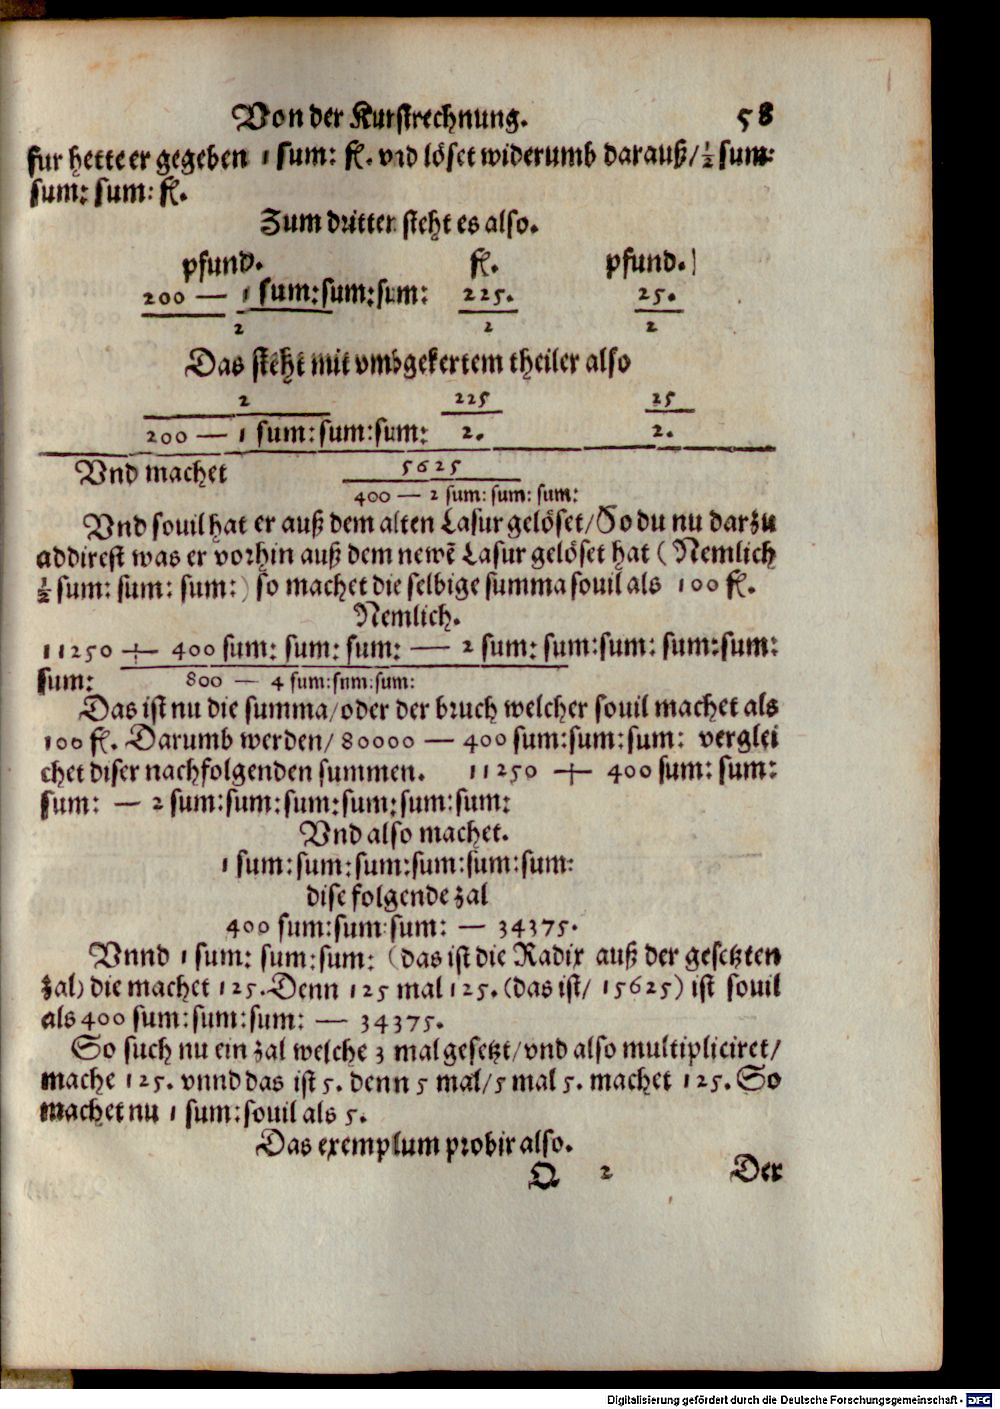 Von der Kunstrechnung. 58
fur hette er gegeben 1 sum: fl. vnd löset widerumb darauß/ ½ sum:
sum: sum: fl.
Zum dritten steht es also.
pfund. fl. pfund.
200 — 1 sum:sum:sum: 225. 25.
2 2 2
Das steht mit vmbgekertem theiler also
2 225 25
200 — 1 sum:sum:sum: 2. 2.
Vnd machet 5625
400 — 2 sum: sum: sum:
Vnd souil hat er auß dem alten Lasur gelöset/ So du nu darzu
addirest was er vorhin auß dem newē Lasur gelöset hat ( Nemlich
½ sum: sum: sum: ) so machet die selbige summa souil als 100 fl.
Nemlich.
11250 + 400 sum: sum: sum: — 2 sum: sum:sum: sum:sum:
sum: 800 — 4 sum:sum:sum:
Das ist nu die summa/oder der bruch welcher souil machet als
100 fl. Darumb werden/ 80000 — 400 sum:sum:sum: verglei
chet diser nachfolgenden summen. 11250 + 400 sum: sum:
sum: — 2 sum:sum:sum:sum:sum:sum:
Vnd also machet.
1 sum:sum:sum:sum:sum:sum:
dise folgende zal
400 sum:sum:sum: — 34375.
Vnnd 1 sum: sum:sum: (das ist die Radix auß der gesetzten
zal) die machet 125. Denn 125 mal 125. (das ist/ 15625) ist souil
als 400 sum:sum:sum: — 34375.
So such nu ein zal welche 3 mal gesetzt/vnd also multipliciret/
mache 125. vnnd das ist 5. denn 5 mal/5 mal 5. machet 125. So
machet nu 1 sum:souil als 5.
Das exemplum probir also.
Q 2 Der
Digitalisierung gefördert durch die Deutsche Forschungsgemeinschaft - DFG